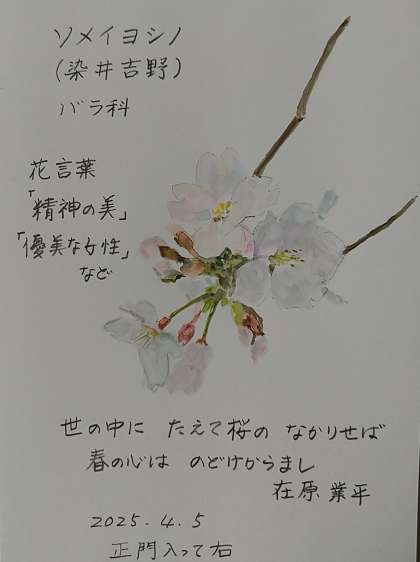 ソメイヨシノ
(染井吉野)
バラ科
花言葉
「精神の美」
「優美な女性」
など
世の中に たえて桜の なかりせば
春の心は のどけからまし
在原業平
2025.4.5
正門入って右